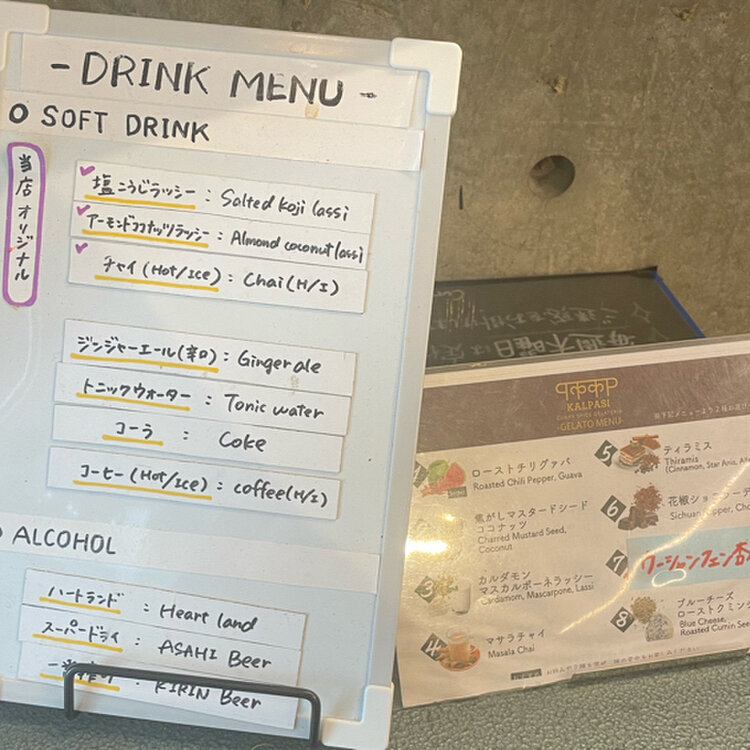 - DRINK MENU -
○ SOFT DRINK
当店オリジナル
塩こうじラッシー : Salted Koji lassi
アーモンドココナッツラッシー : Almond coconut lassi
チャイ (Hot/Ice) : Chai (H/I)
ジンジャーエール(辛口) : Ginger ale
トニックウォーター : Tonic water
コーラ : Coke
コーヒー (Hot/Ice) : coffee(H/I)
ALCOHOL
ハートランド : Heart land
スーパードライ : ASAHI Beer
KIRIN Beer
毎週木曜日は
KALPASI
-GELATO MENU-
下記メニューより2種お選び
ローストチリグァバ
Roasted Chili Pepper, Guava
焦がしマスタードシード
ココナッツ
Charred Mustard Seed,
Coconut
3
カルダモン
マスカルポーネラッシー
Cardamom, Mascarpone, Lassi
4
マサラチャイ
Masala Chai
5
ティラミス
Thiramis
(Cinnamon, Star Anis,
6
花椒ショコラーデ
Sichuan Pepper,
7
ワージョンフェン杏
8
ブルーチーズ
ローストクミン
Blue Cheese,
Roasted Cumin See